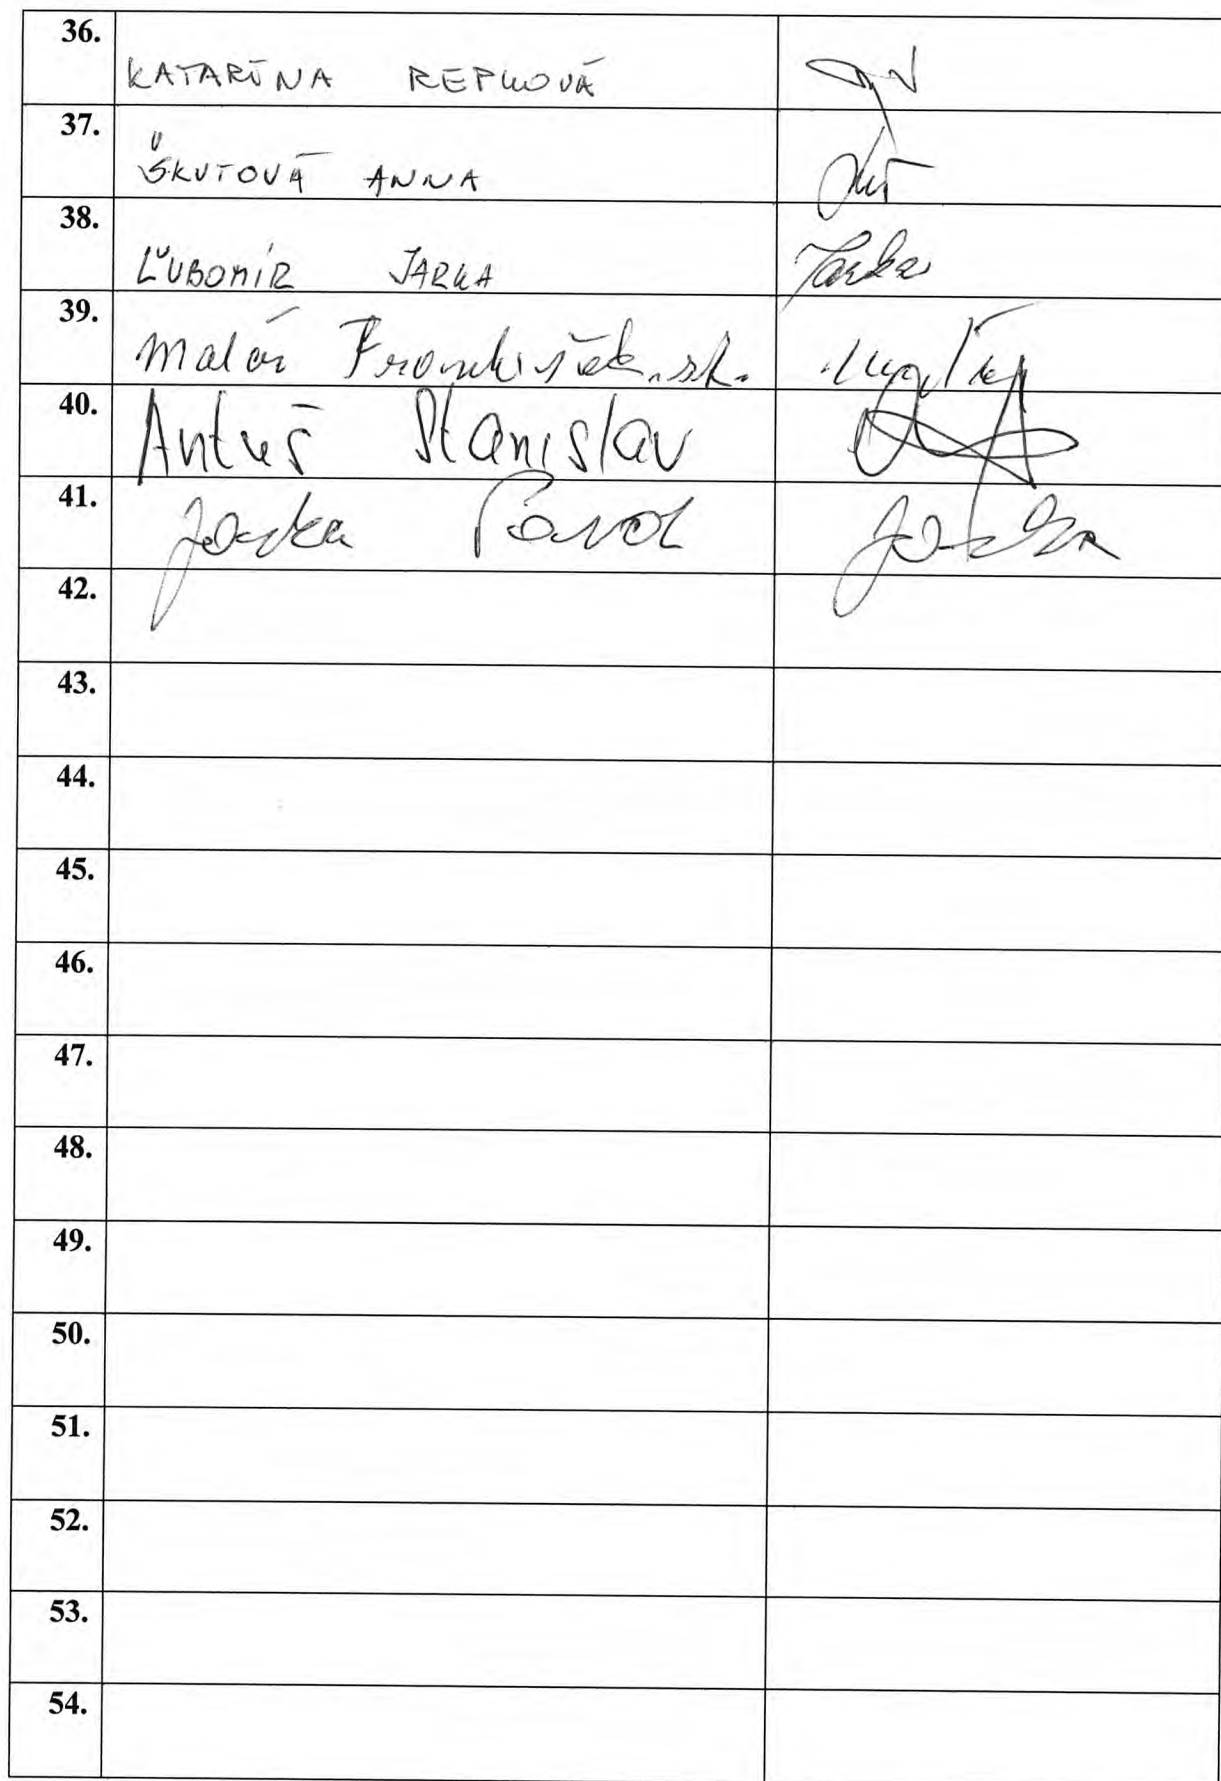 36. KATARÍNA REPKOVÁ
37. ŠKUTOVÁ ANNA
38. ĽUBOMÍR JARKA Jarka
39. František st.
40. Antuš Stanislav
41. Jarka Pavol Jarka
42.
43.
44.
45.
46.
47.
48.
49.
50.
51.
52.
53.
54.